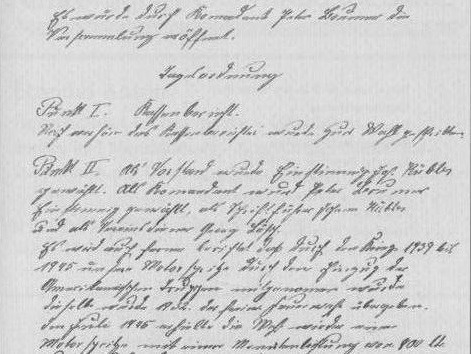 Es wurde durch Komandant Peter Brunner die
Versammlung eröffnet.
Tagesordnung
Punkt I. Kassenbericht.
Nach des Kassenberichtes wurde zur Wahl geschritten.
Punkt II. Als Vorstand wurde Einstimmig Jos. Kübler
gewählt. Als Komandant wurde Peter Brunner
Einstimmig gewählt, als Schriftführer Johann Kübler
und als Vereinsdiener Georg
Es wird auch ferner berichtet daß durch den Krieg 1939 bis
1945 unsere Motorspritze durch den Einzug der
Amerikanischen Truppen mitgenommen wurde
dieselbe wurde der Feuerwehr übergeben.
1945 erhielte die wieder eine
Motorspritze mit einer Minutenleistung von 800 lt